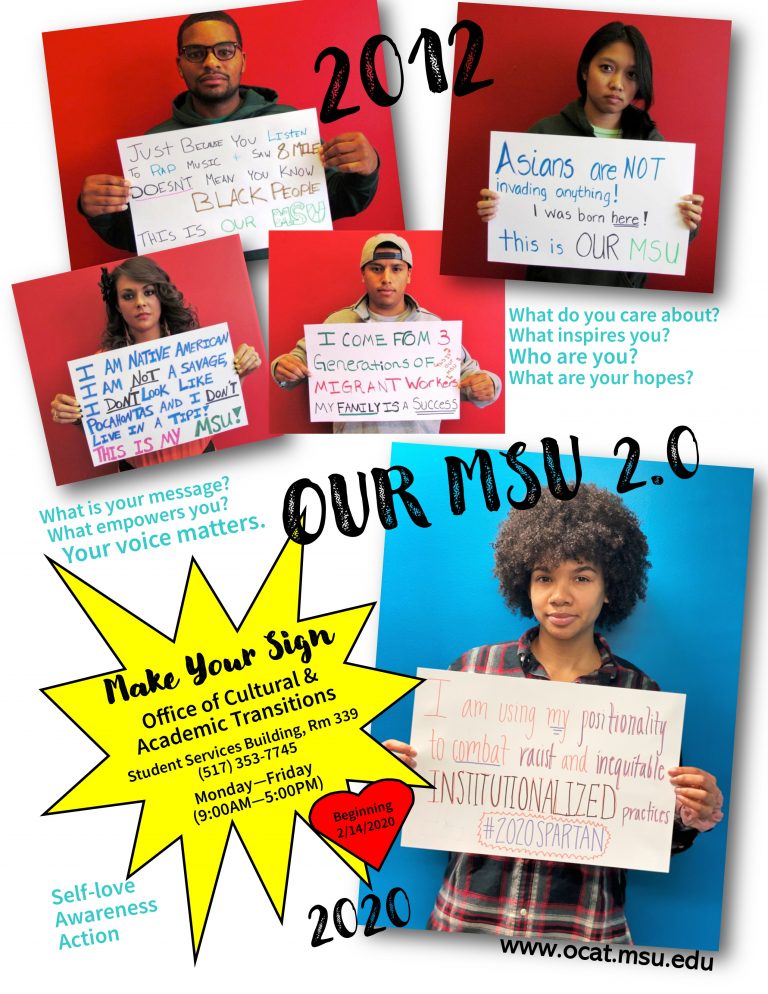 2012
JUST BECAUSE YOU LISTEN
TO RAP MUSIC + SAW 8 MILE
DOESN'T MEAN YOU KNOW
BLACK PEOPLE
THIS IS OUR MSU
Asians are NOT
invading anything!
I was born here!
this is OUR MSU
I AM NATIVE AMERICAN
I AM NOT A SAVAGE,
I DON'T LOOK LIKE
POCAHONTAS AND I DON'T
LIVE IN A TIPI!
THIS IS MY MSU!
I COME FROM 3
Generations OF
MIGRANT Workers
MY FAMILY IS A SUCCESS
What do you care about?
What inspires you?
Who are you?
What are your hopes?
What is your message?
What empowers you?
Your voice matters.
OUR MSU 2.0
Make Your Sign
Office of Cultural &
Academic Transitions
Student Services Building, Rm 339
(517) 353-7745
Monday—Friday
(9:00AM—5:00PM)
Beginning
2/14/2020
I am using my positionality
to combat racist and inequitable
INSTITUTIONALIZED practices
#2020SPARTAN
Self-love
Awareness
Action
2020
www.ocat.msu.edu